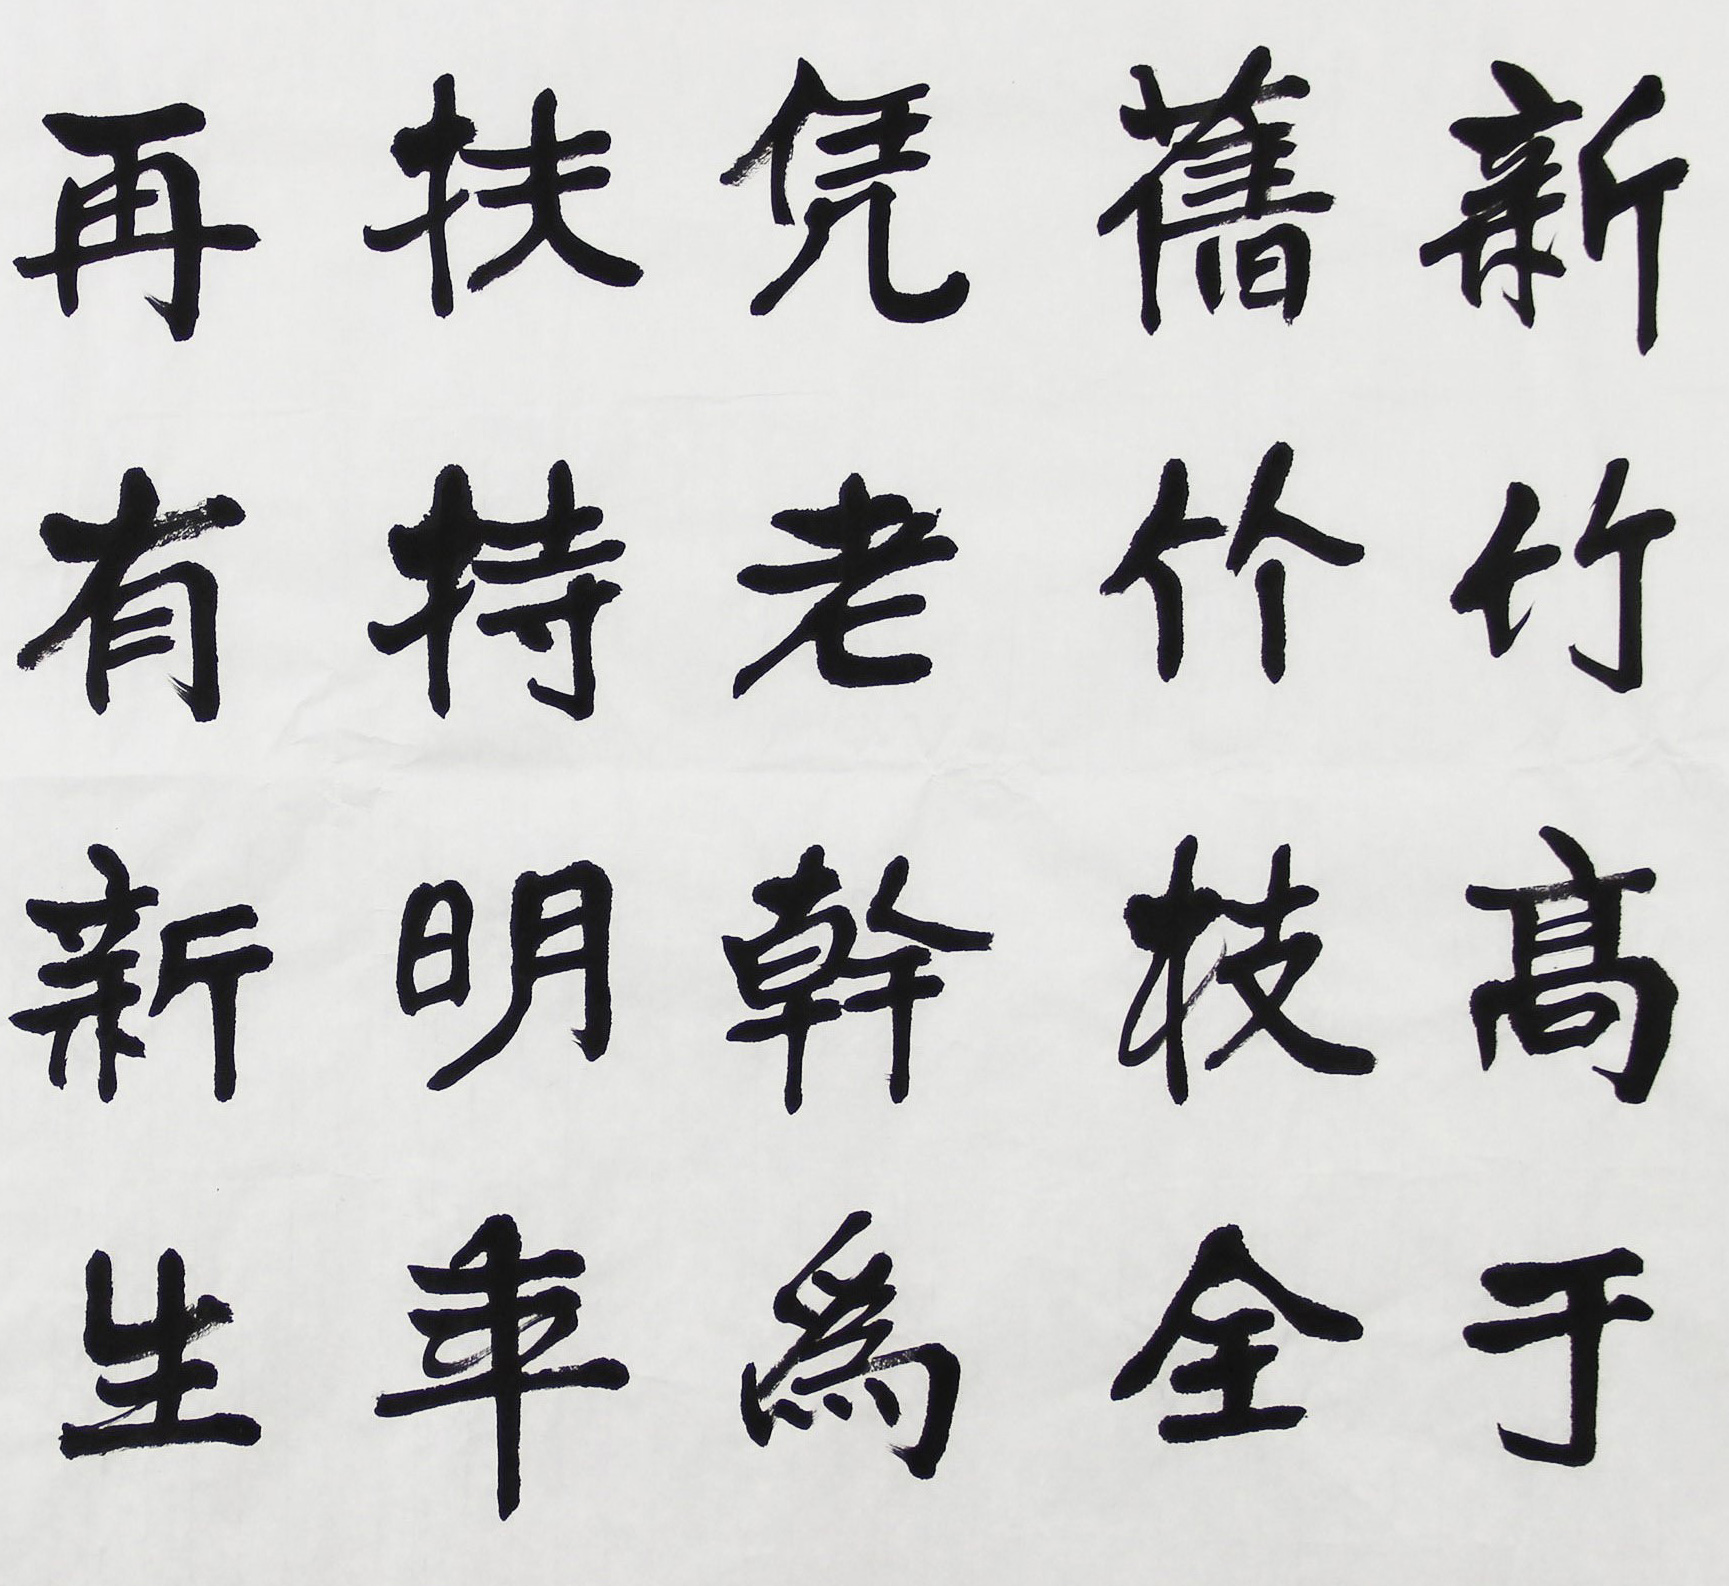 新竹髙于
舊竹枝全
凭老幹為
扶持明年
再有新生